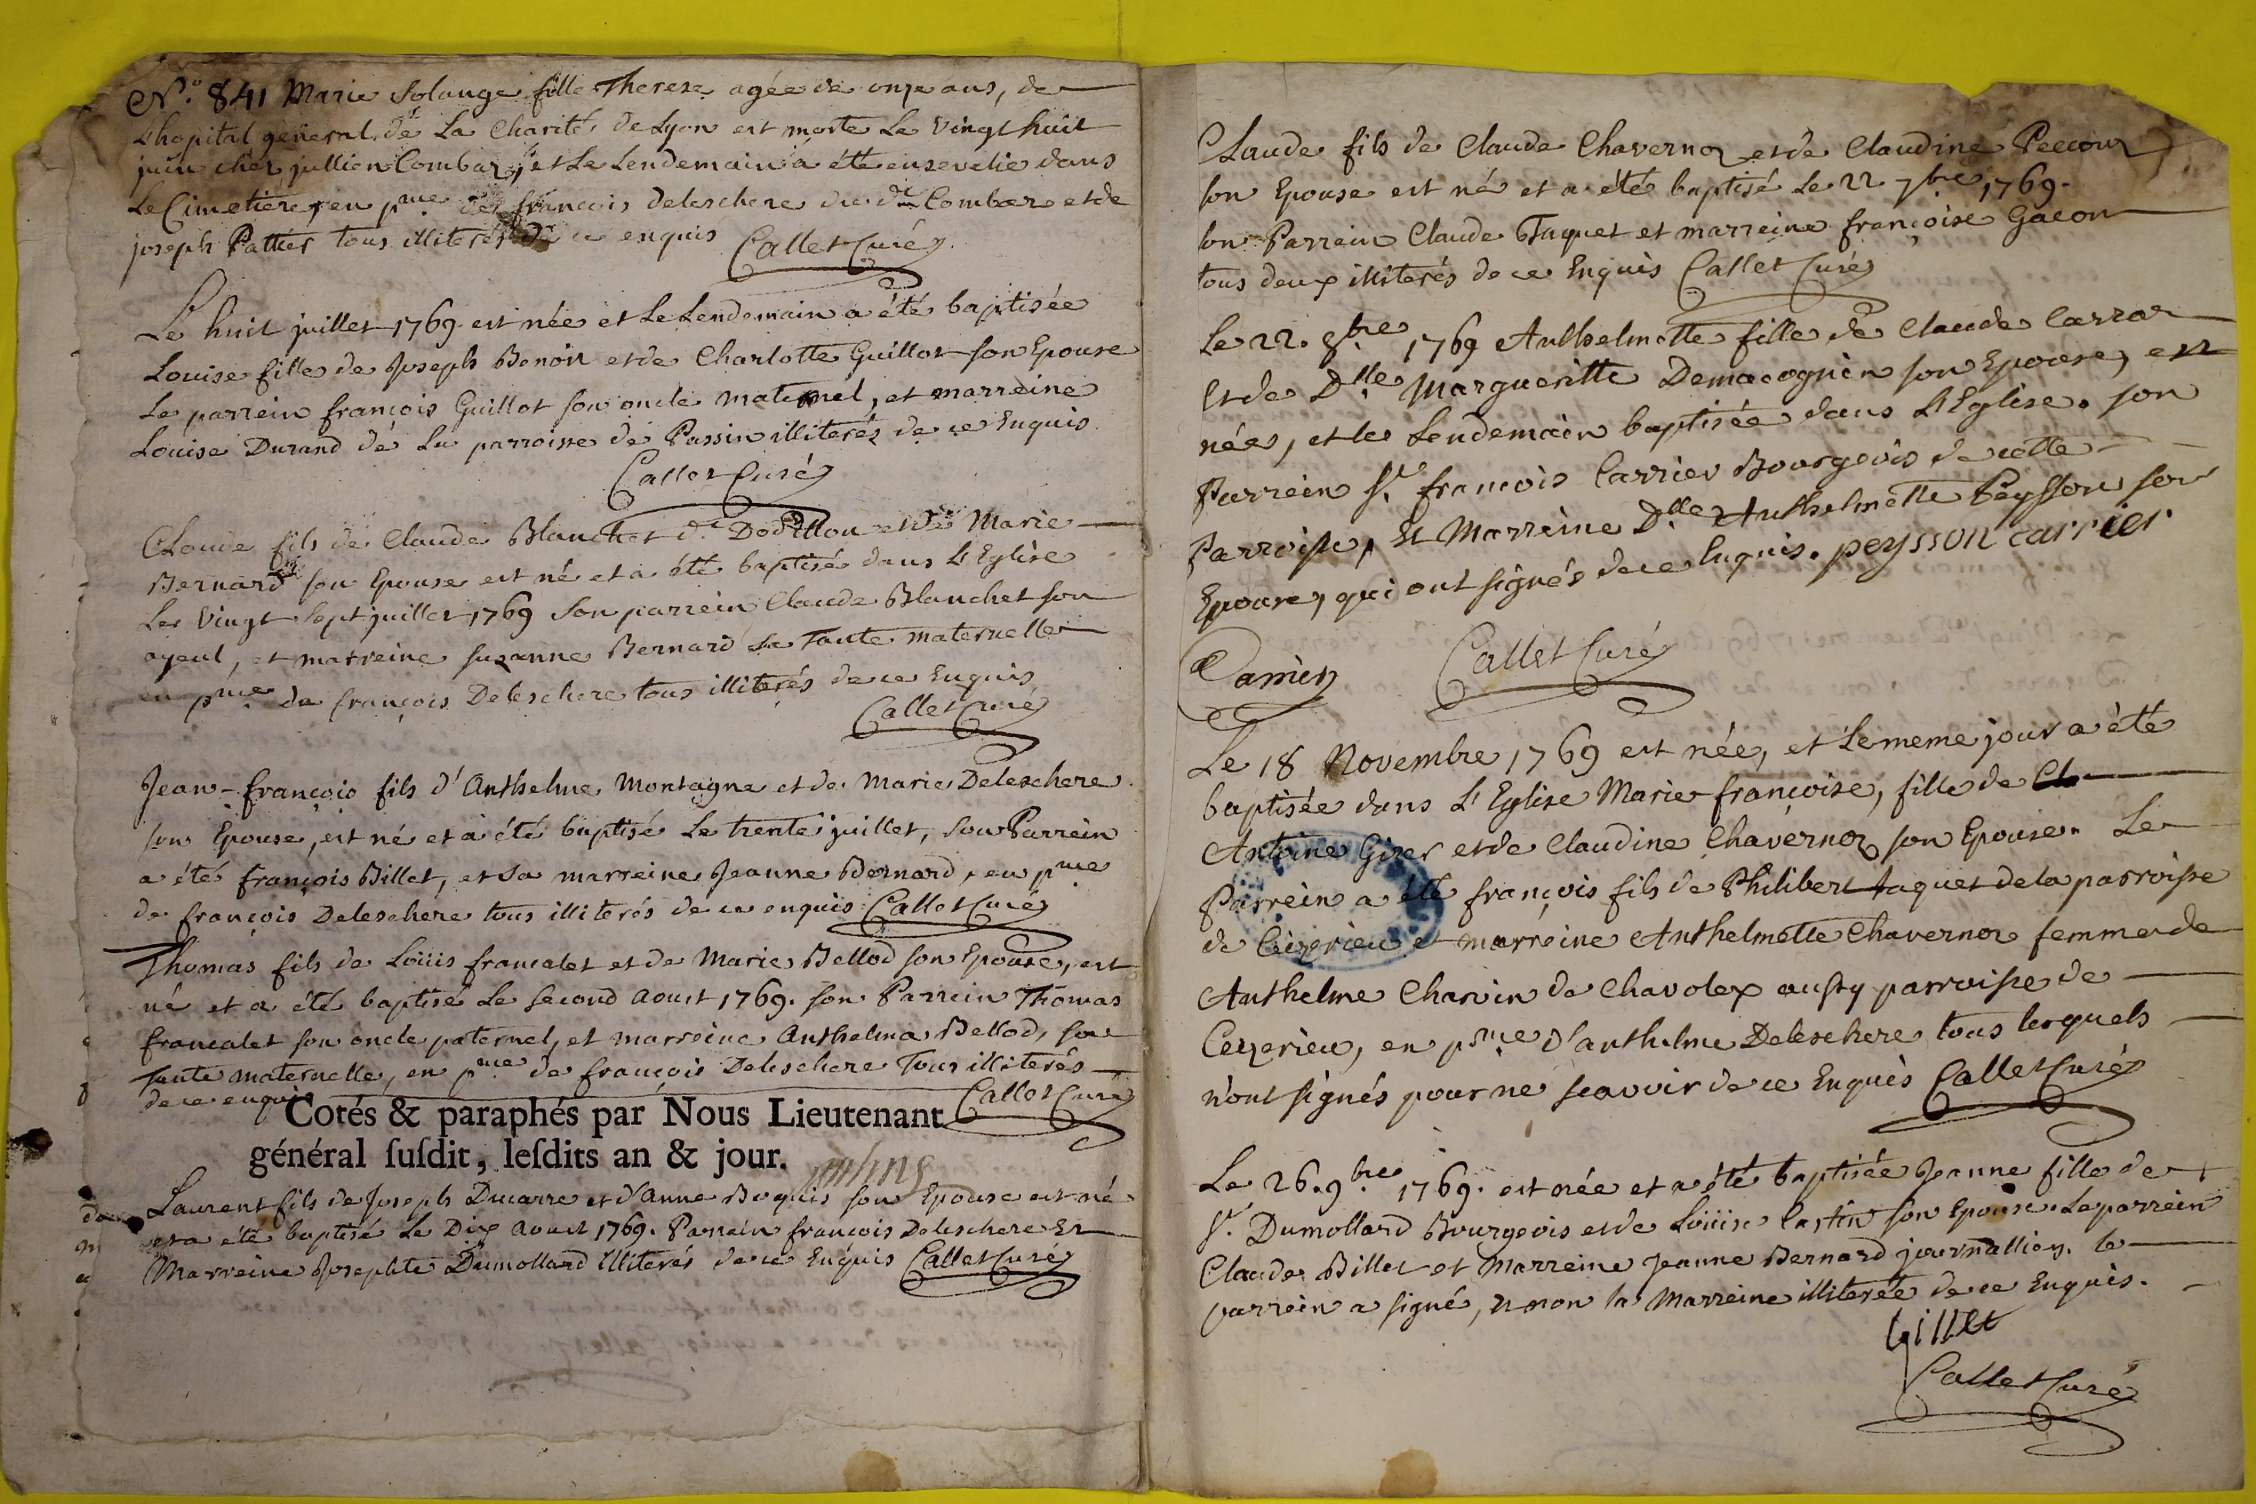 N.o 841 Marie Solange fille Therese agée de onze ans, de
L'hopital général de La Charité de Lyon est morte Le Vingt huit
juin chéz jullien Combaz, et Le Lendemain a été ensevelie dans
Le Cimetiere, en pnce de françois deleschere du dit Combaz et de
joseph Pattier tous illiterés de ce enquis Callet Curé
Le huit juillet 1769. est née et Le Lendemain a été baptisée
Louise fille de Joseph Benoit et de Charlotte Guillot son Epouse
Le parrein françois Guillot son oncle maternel, et marreine
Louise Durand de La parroisse de Passin illiterés de ce Enquis.
Callet Curé
Claude fils de Claude Blanchet dt Dodillon et de Marie
Bernard son Epouse est né et a été baptisé dans L'Eglise
Le Vingt Sept juillet 1769 Son parrein Claude Blanchet son
ayeul, et marreine suzanne Bernard sa Tante maternelle
en pnce de françois Deleschere tous illiterés de ce Enquis
Callet Curé
Jean-françois fils d'Anthelme Montagne et de Marie Deleschere
son Epouse, est né et a été baptisé Le trente juillet, son Parrein
a été françois Billet, et sa marreine Jeanne Bernard, en pnce
de françois Deleschere tous illiterés de ce enquis Callet Curé
Thomas fils de Loüis francalet et de Marie Bellod son Epouse, est
né et a été baptisé Le second Aoust 1769. son Parrein Thomas
francalet son oncle paternel, et marreine Anthelma Bellod, sa
Tante maternelle, en pnce de françois Deleschere Tous illiterés
de ce enquis Callet Curé
Cotés & paraphés par Nous Lieutenant
général ſuſdit, leſdits an & jour.
Laurent fils de Joseph Ducarre et d'Anne Boquis son Epouse est né
et a été baptisé Le Dix Aoust 1769. Parrein françois Deleschere Et
Marreine Josephte Dumollard illiterés de ce Enquis Callet Curé
Claude fils de Claude Chavernoz et de Claudine Peccour
son Epouse est né et a été baptisé Le 22 7bre 1769.
son Parrein Claude Taquet et marreine françoise Gacon
tous deux illiterés de ce Enquis Callet Curé
Le 22. 8bre 1769 Anthelmette fille de Claude Carrar
Et de Dlle Margueritte Demacognin son Epouse, est
née, et le Lendemain baptisée dans L'Eglise. son
Parrein Sr. françois Carrier Bourgeois de cette
Parroisse, Et Marreine Dlle Anthelmette Peysson son
Epouse, qui ont signés de ce Enquis. peysson carrier
Carrier Callet Curé
Le 18 Novembre 1769 est née, et Le meme jour a été
baptisée dans L'Eglise Marie françoise, fille de Cla
Antoine Girer et de Claudine Chavernoz son Epouse. Le
Parrein a été françois fils de Philibert Jaquet de la parroisse
de Ceizerieu et marreine Anthelmette Chavernoz femme de
Anthelme Charvin de Chavolex aussy parroisse de
Ceyzerieu, en pnce d'anthelme Deleschere tous lesquels
n'ont signés pour ne scavoir de ce Enquis Callet Curé
Le 26. 9bre 1769. est née et a été baptisée Jeanne fille de
Sr. Dumollard Bourgeois et de Loüise Castin son Epouse. Le parrein
Claude Billet et Marreine Jeanne Bernard journallien. le
parrein a signé, et non la Marreine illiterée de ce Enquis.
billet
Callet Curé